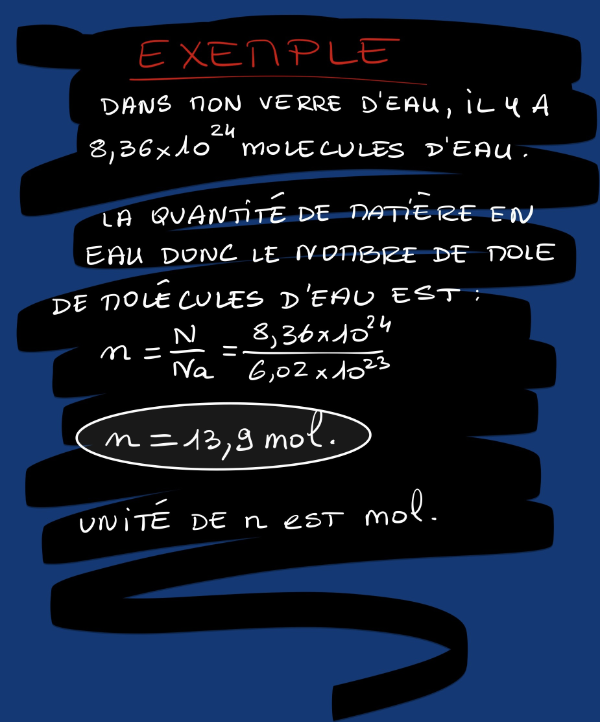 EXEMPLE
DANS MON VERRE D'EAU, iL Y A
8,36x10²⁴ MOLECULES D'EAU.
LA QUANTITÉ DE MATIÈRE EN
EAU DONC LE NOMBRE DE MOLE
DE MOLÉCULES D'EAU EST :
n = N/Na = 8,36x10²⁴/6,02x10²³
n = 13,9 mol.
UNITÉ DE n EST mol.